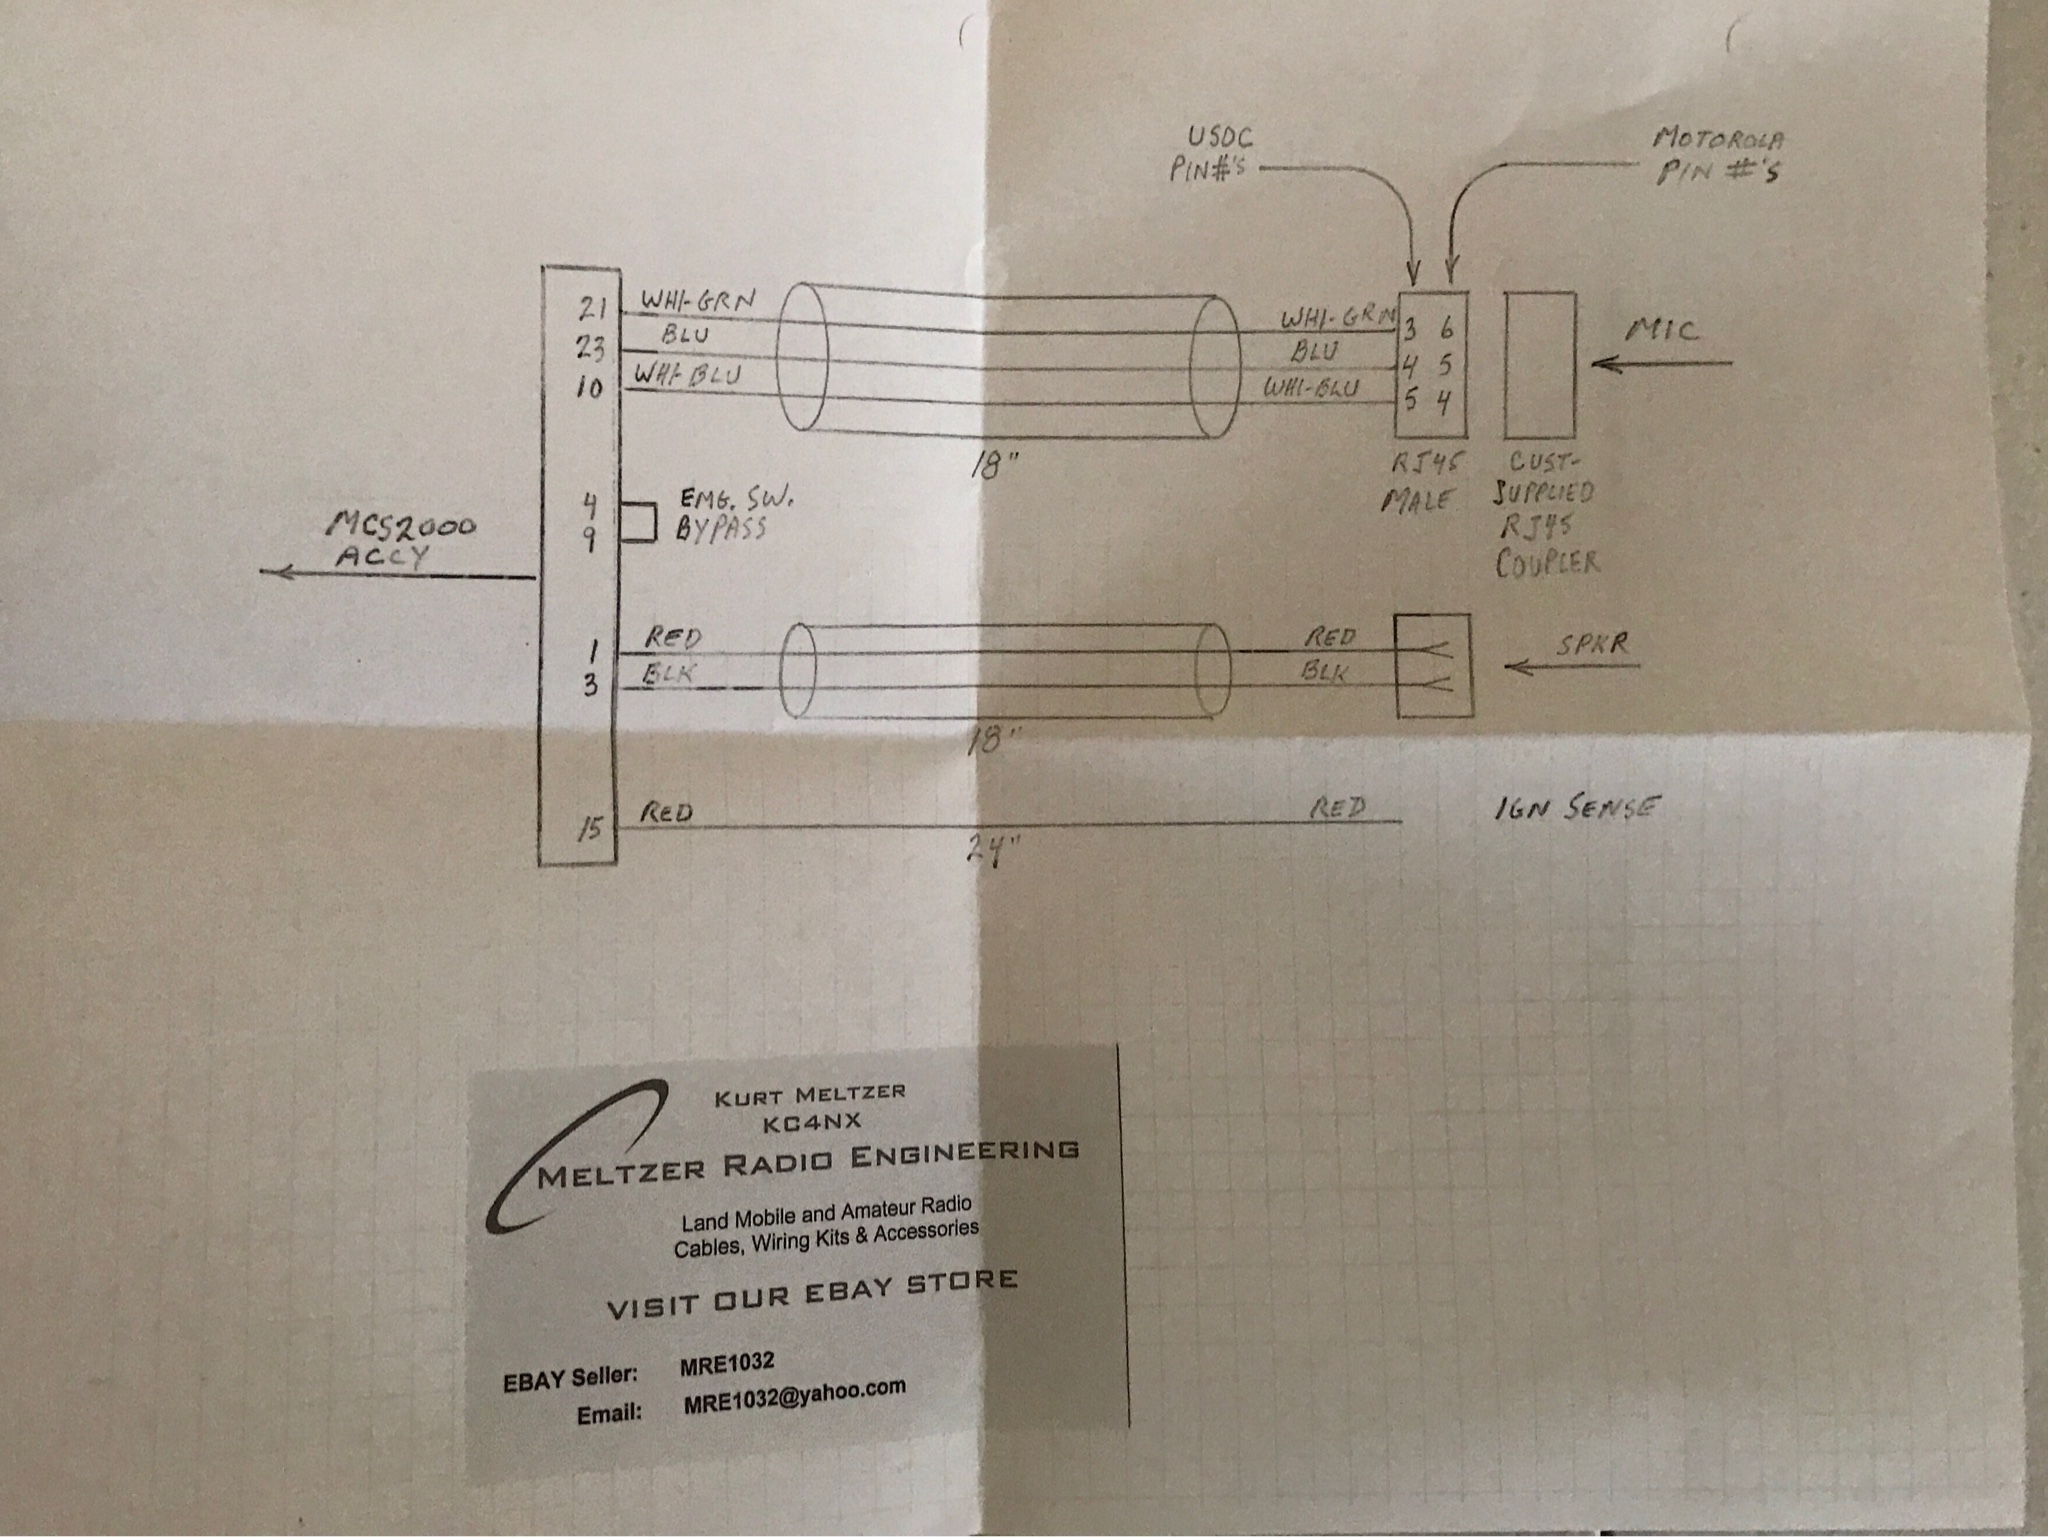 USOC
PIN#'S
MOTOROLA
PIN #'S
21 WHI-GRN WHI-GRN 3 6
23 BLU BLU 4 5
10 WHI-BLU WHI-BLU 5 4
MIC
18"
RJ45
MALE
CUST-
SUPPLIED
RJ45
COUPLER
4 EMG. SW.
9 BYPASS
MCS2000
ACCY
1 RED RED
3 BLK BLK
SPKR
18"
15 RED RED IGN SENSE
24"
KURT MELTZER
KC4NX
MELTZER RADIO ENGINEERING
Land Mobile and Amateur Radio
Cables, Wiring Kits & Accessories
VISIT OUR EBAY STORE
EBAY Seller: MRE1032
Email: MRE1032@yahoo.com